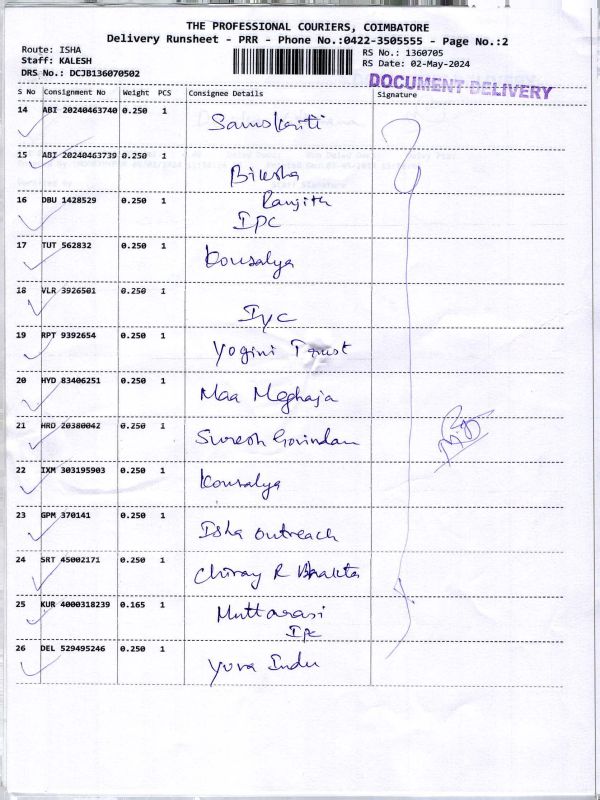 THE PROFESSIONAL COURIERS, COIMBATORE
Delivery Runsheet - PRR - Phone No.:0422-3505555 - Page No.:2
Route: ISHA
Staff: KALESH
DRS No.: DCJB136070502
RS No.: 1360705
RS Date: 02-May-2024
DOCUMENT DELIVERY
S No Consignment No Weight PCS Consignee Details Signature
14 ABI 20240463740 0.250 1 Samskriti
15 ABI 20240463739 0.250 1 Biksha
16 DBU 1428529 0.250 1 Ranjith
IPC
17 TUT 562832 0.250 1 Kousalya
18 VLR 3926501 0.250 1 IYC
19 RPT 9392654 0.250 1 Yogini Trust
20 HYD 83406251 0.250 1 Maa Meghaja
21 HRD 20380042 0.250 1 Suresh Govindan
22 IXM 303195903 0.250 1 Kousalya
23 GPM 370141 0.250 1 Isha outreach
24 SRT 45002171 0.250 1 Chiray R Bhakta
25 KUR 4000318239 0.165 1 Muttarasi
IPC
26 DEL 529495246 0.250 1 Yuva Indu